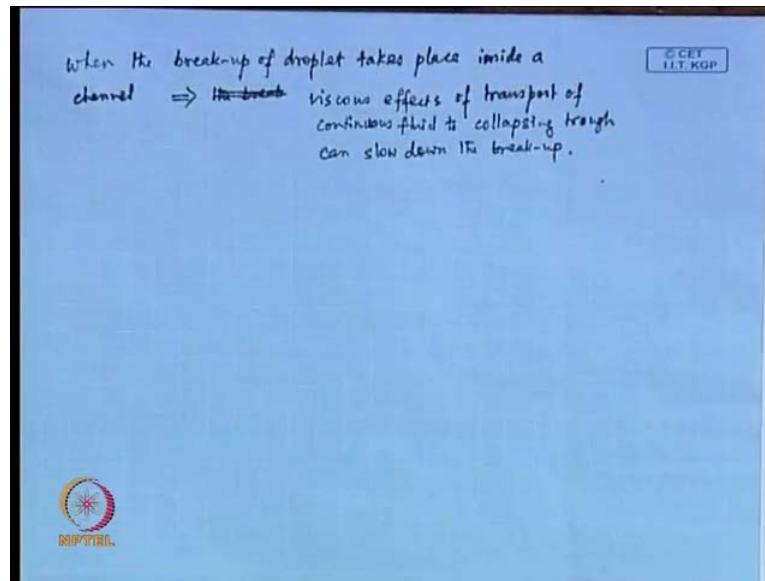 when the break-up of droplet takes place inside a
© CET
I.I.T. KGP
channel ⇒ viscous effects of transport of
continuous fluid to collapsing trough
can slow down the break-up.
NPTEL